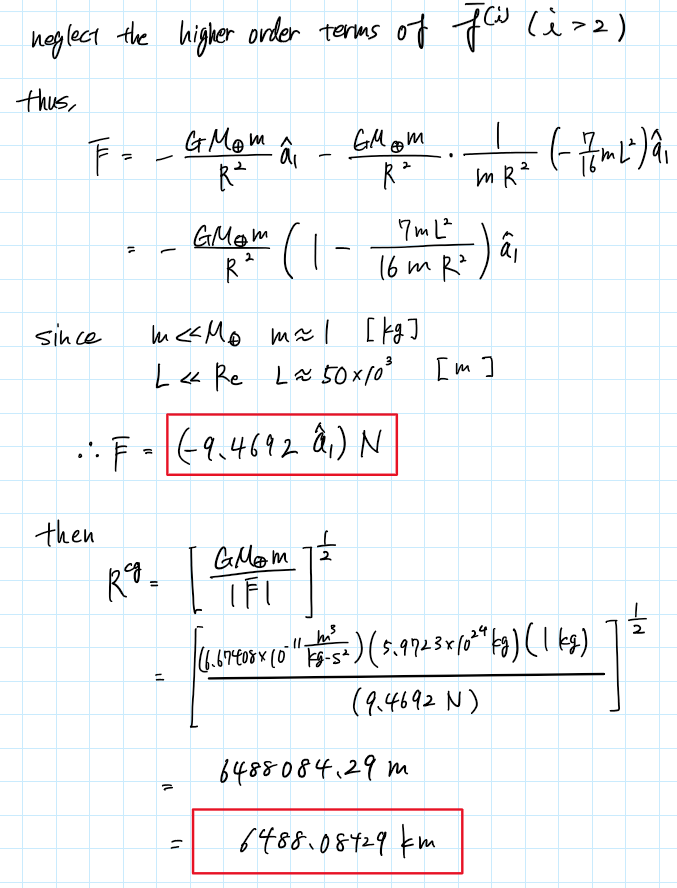 neglect the higher order terms of f̄⁽ⁱ⁾ (i > 2)
thus,
F̄ = - GM⊕m/R² â₁ - GM⊕m/R² · 1/(mR²) (-7/16 mL²) â₁
= - GM⊕m/R² (1 - 7mL²/(16mR²)) â₁
since m << M⊕ m ≈ 1 [kg]
L << Re L ≈ 50×10³ [m]
∴ F̄ = (-9.4692 â₁) N
then
R^cg = [GM⊕m/|F̄|]^(1/2)
= [(6.67408×10⁻¹¹ m³/kg-s²)(5.9723×10²⁴ kg)(1 kg)/(9.4692 N)]^(1/2)
= 6488084.29 m
= 6488.08429 km